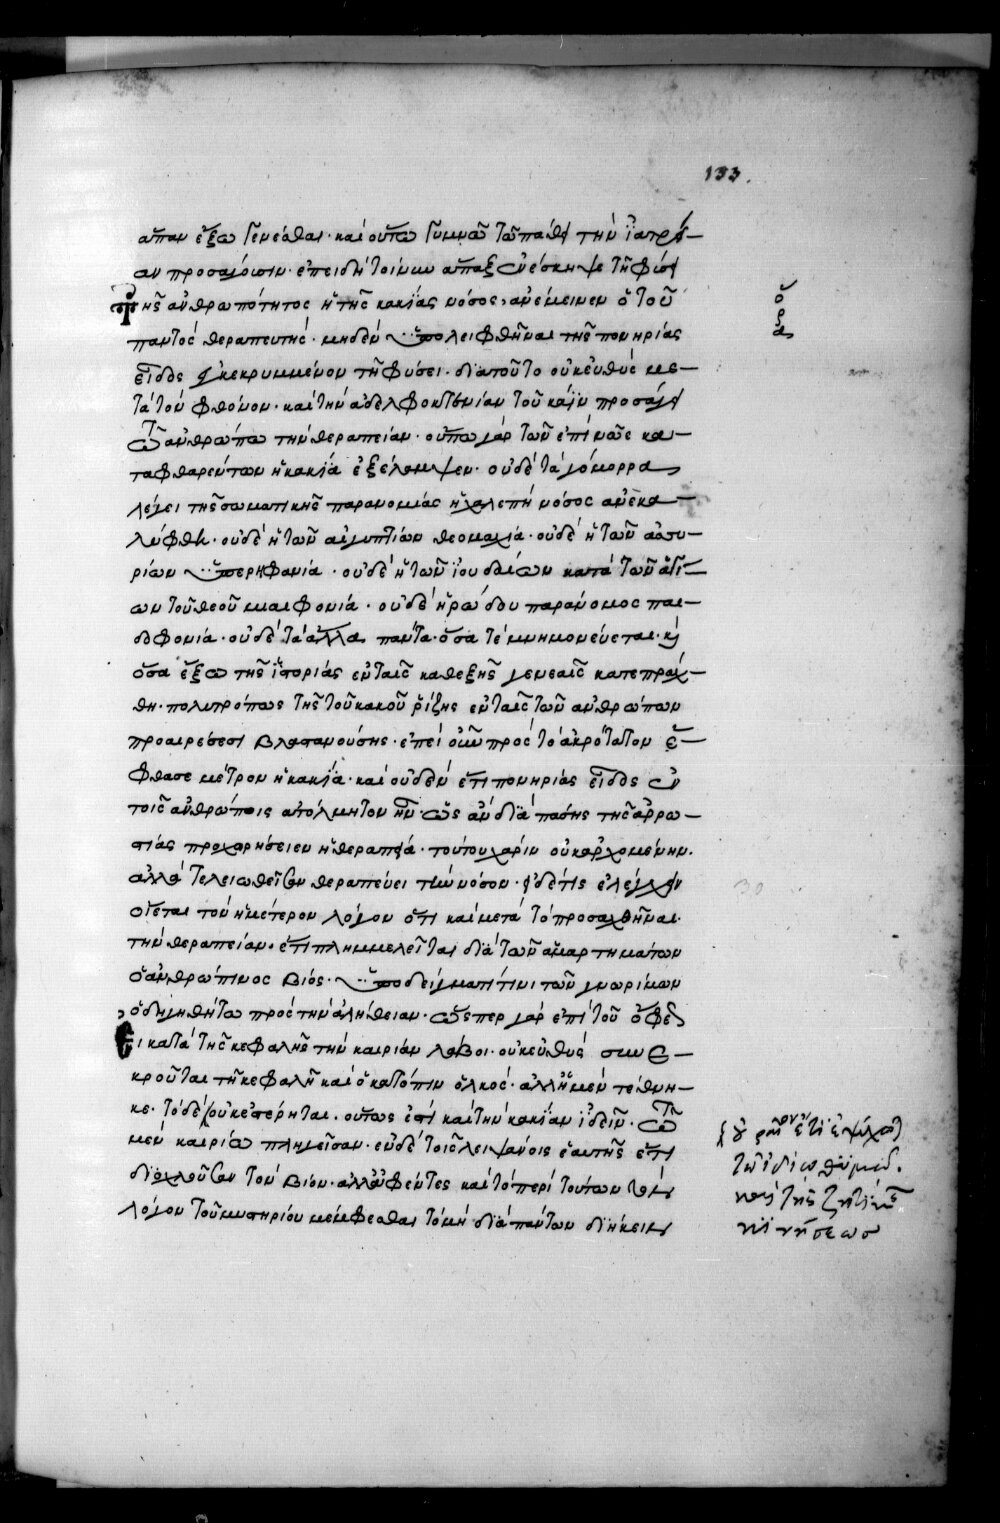 133.
ἅπαν ἔξω γενέσθαι· καὶ οὕτω γυμνῶ τῶ πάθει τὴν ἰατρεί-
αν προσαγάγωσιν· ἐπειδὴ τοίνυν ἅπαξ ἐνέσκηψε τῆ φύσει
τῆς ἀνθρωπότητος ἡ τῆς κακίας νόσος, ἀνέμεινεν ὁ τοῦ
ὅρα
παντὸς θεραπευτής· μηδὲν ὑπολειφθῆναι τῆς πονηρίας
εἶδος ἐγκεκρυμμένον τῆ φύσει· διατοῦτο οὐκ εὐθὺς με-
τὰ τὸν φθόνον· καὶ τὴν ἀδελφοκτονίαν τοῦ κάϊν προσάγει
τῶ ἀνθρώπω τὴν θεραπείαν· οὔπω γὰρ τῶν ἐπὶ νῶε κα-
ταφθαρέντων ἡ κακία ἐξέλαμψεν· οὐδὲ τὰ γόμορρα
λέγει τῆς σωματικῆς παρανομίας ἡ χαλεπὴ νόσος ἀνεκα-
λύφθη· οὐδὲ ἡ τῶν αἰγυπτίων θεομαχία· οὐδὲ ἡ τῶν ἀσσυ-
ρίων ὑπερηφανία· οὐδὲ ἡ τῶν ἰουδαίων κατὰ τῶν ἁγί-
ων τοῦ θεοῦ μιαιφονία· οὐδὲ ἡ ρώδου παράνομος παι-
δοφονία· οὐδὲ τὰ ἄλλα πάντα· ὅσα τὲ μνημονεύεται· κὶ
ὅσα ἔξω τῆς ἱστορίας ἐν ταῖς καθεξῆς γενεαῖς κατεπράχ-
θη· πολυτρόπως τῆς τοῦ κακοῦ ῥίζης ἐν ταῖς τῶν ἀνθρώπων
προαιρέσεσι βλαστανούσης· ἐπεὶ οὖν πρὸς τὸ ἀκρότατον ἔ-
φθασε μέτρον ἡ κακία· καὶ οὐδὲν ἔτι πονηρίας εἶδος ἐν
τοῖς ἀνθρώποις ἀτόλμητον ἦν· ὡς ἂν διὰ πάσης τῆς ἀρρω-
στίας προχωρήσειεν ἡ θεραπεία· τούτου χάριν οὐκ ἀρχομένην.
ἀλλὰ τελειωθεῖσαν θεραπεύει τὴν νόσον· εἰ δέ τις ἐλέγχειν
οἴεται τὸν ἡμέτερον λόγον ὅτι καὶ μετὰ τὸ προσαχθῆναι.
τὴν θεραπείαν· ἔτι πλημμελεῖται διὰ τῶν ἁμαρτημάτων
ὁ ἀνθρώπινος βίος· ὑποδείγματί τινι τῶν γνωρίμων
ὁδηγηθήτω πρὸς τὴν ἀλήθειαν· ὥσπερ γὰρ ἐπὶ τοῦ ὄφεως
εἰ κατὰ τῆς κεφαλῆς τὴν καιρίαν λάβοι· οὐκ εὐθὺς συνε-
κροῦται τῆ κεφαλῆ καὶ ὁ κατόπιν ὁλκός· ἀλλ' ἡ μὲν τέθνη-
κε· τὸ δὲ οὐκ ἐστέρηται· οὕτως ἐστὶ καὶ τὴν κακίαν ἰδεῖν· τῶ
μὲν καιρίω πληγεῖσαν· ἐν δὲ τοῖς λειψάνοις ἑαυτῆς ἔτι
διοχλοῦσαν τὸν βίον· ἀλλ' ἀφέντες καὶ τὸ περὶ τούτων τὸν
λόγον τοῦ μυστηρίου μέμφεσθαι τὸ μὴ διὰ πάντων διήκειν
οὐραῖον ἔτι ἐψύχωται
τῶ ἰδίω θυμῶ.
καὶ τῆς ζωτικῆς
κινήσεως